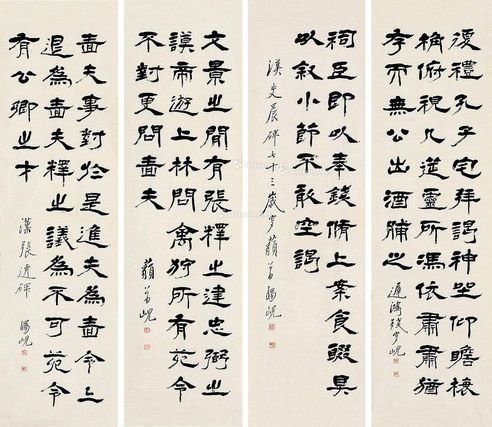 復禮孔子宅拜謁神坐仰瞻榱
桷俯視几筵靈所馮依肅肅猶
存而無公出酒脯之
遲鴻殘叟峴
祠臣即以奉錢脩上案食醊具
以敘小節不敢空謁
漢史晨碑七十三歲叟藐翁楊峴
文景之間有張釋之建忠弼之
謨帝遊上林問禽狩所有苑令
不對更問嗇夫
藐翁峴
嗇夫事對於是進夫為嗇令〻
退為嗇夫釋之議為不可苑令
有公卿之才
漢張遷碑
楊峴